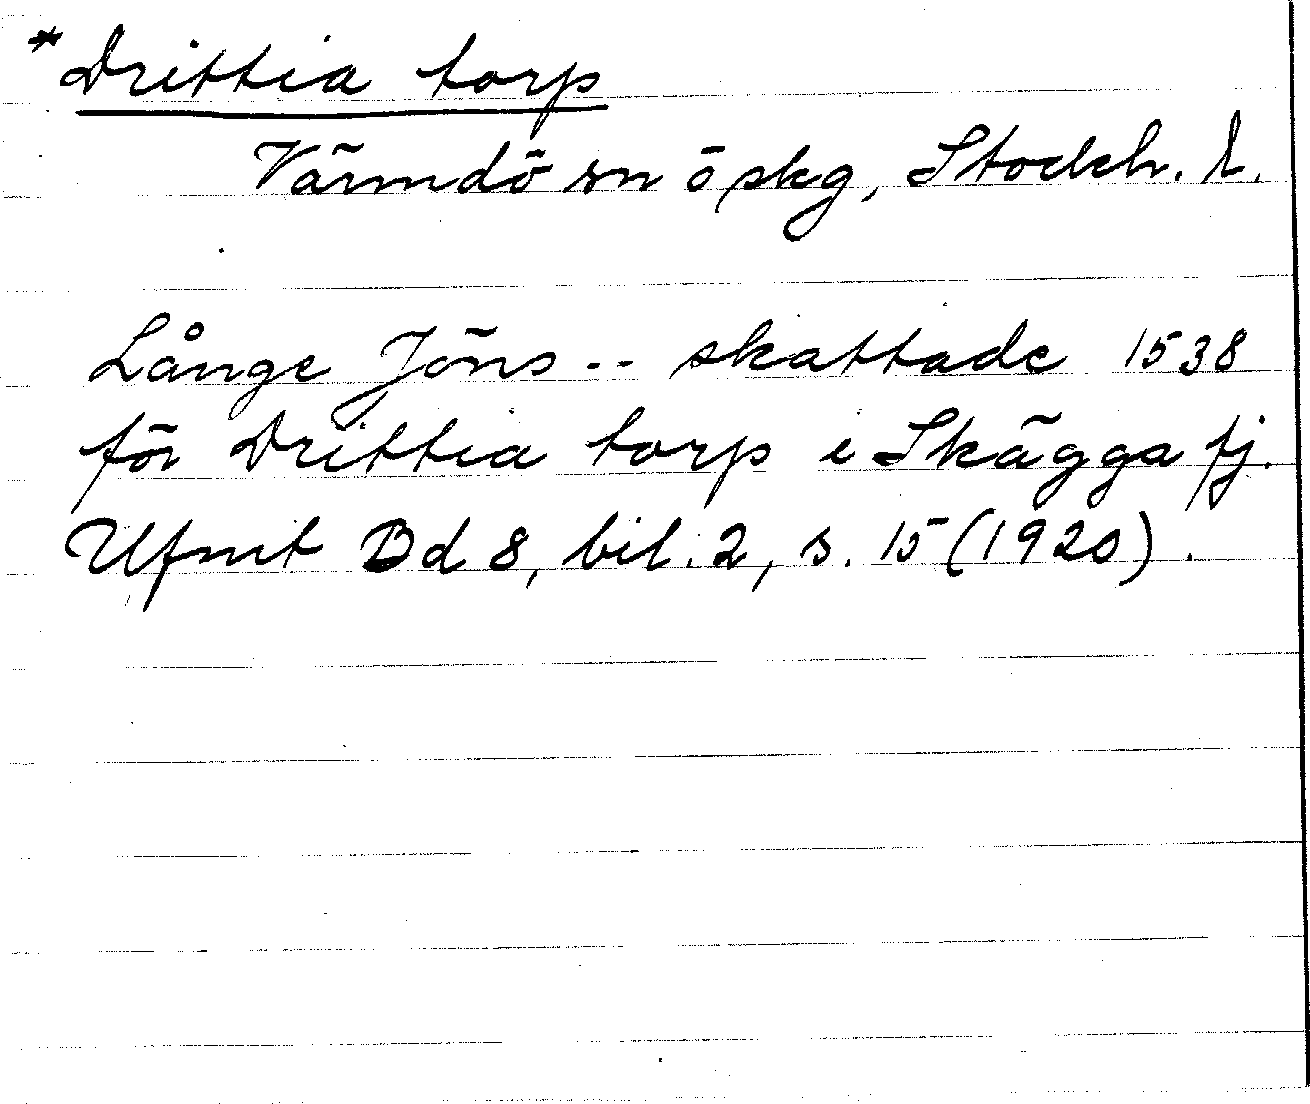 *Drittia torp
Värmdö sn ö skg, Stockh. l.
Långe Jöns .. skattade 1538
för Drittia torp i Skägga fj.
Ufmt Bd 8, bil. 2, s. 15 (1920).